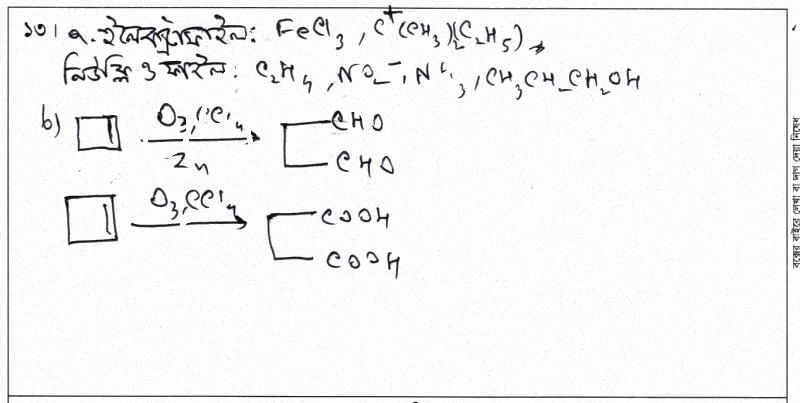 ১৩। a. ইলেকট্রোফাইল: FeCl3, C+(CH3)2(C2H5)
নিউক্লিওফাইল: C2H4, NO2-, , CH3CH2CH2OH
b) O3, CCl4 CHO
Zn CHO
O3, CCl4 COOH
COOH
বক্সের বাইরে লেখা বা দাগ দেয়া নিষেধ